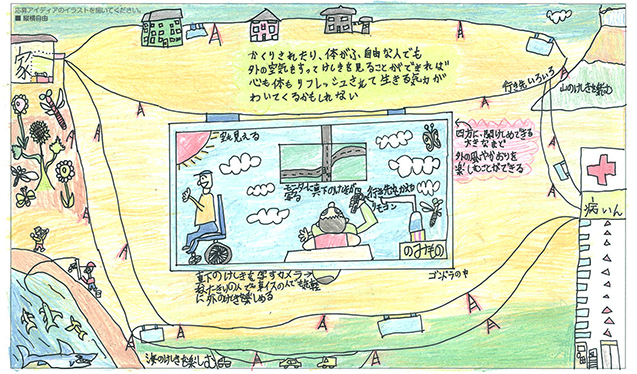 応募アイディアのイラストを描いてください。
■ 縦横自由
かくりされたり、体がふ自由な人でも
外の空気をすってけしきを見ることができれば
心も体もリフレッシュされて生きる気力が
わいてくるかもしれない
家
行き先いろいろ
山のけしきを楽しむ
空も見える
四方に開けしめできる
大きなまど
外の風やかおりを
楽しむことができる
モニターに真下のけしきが
写る
行き先をかえる
リモコン
病いん
のみもの
真下のけしきを写すカメラ
ねたきりの人でも車イスの人でも気軽
に外のけしきを楽しめる
ゴンドラの中
海のけしきを楽しむ